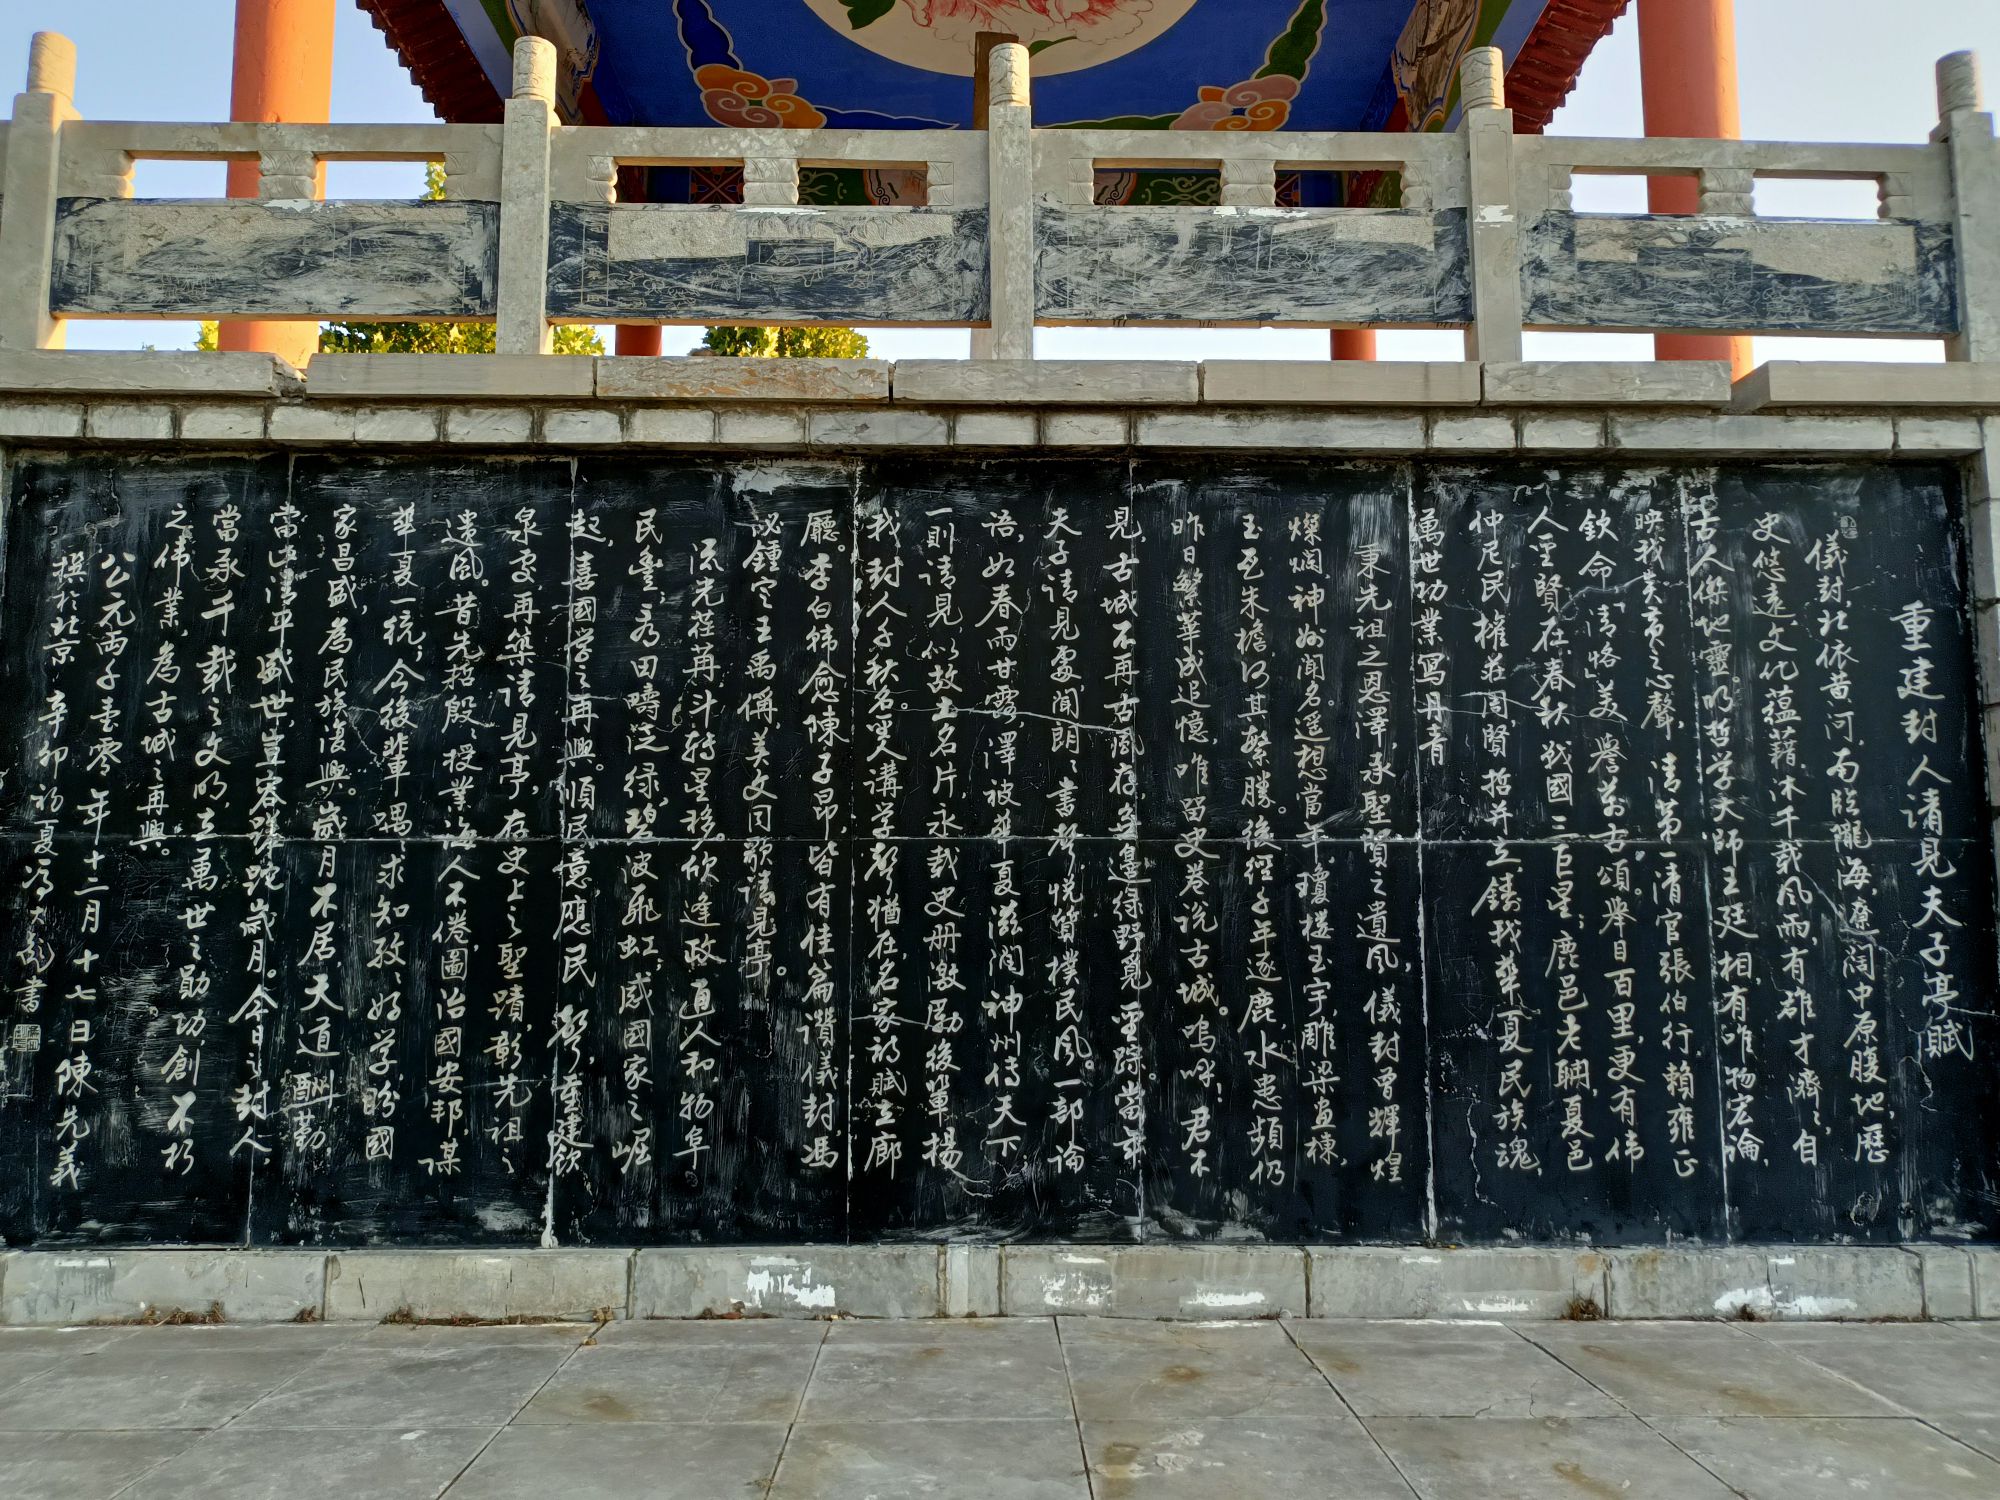 重建封人请見夫子亭賦
儀封，北依黄河，南臨隴海，療阔中原腹地，歷
史悠遠，文化蕴藉，沐千载风雨，有雄才濟濟，自
古人傑地靈。明哲学大師王廷相，有唯物宏論，
映我炎黄之心聲，清第一清官張伯行，賴雍正
欽命「清恪」美譽，萬古頌。舉目百里，更有伟
人聖賢在，春秋战國三巨星；鹿邑老聃，夏邑
仲尼，民權莊周，賢哲并立，鑄我華夏民族魂，
萬世功業寫丹青
秉先祖之恩澤，承聖賢之遺风，儀封曾輝煌
燦烂，神州闻名。遥想當年，瓊楼玉宇，雕梁畫棟，
玉瓦朱檐，何其繁勝。後經千年逐鹿，水患頻仍
昨日繁華成追憶，唯留史卷说古城。嗚呼！君不
見，古城不再古風存，鱼邊绿野覓聖踪。當年
夫子请見處，闻朗朗書声，悦質樸民风。一部論
語，如春雨甘露，澤被華夏，滋润神州；侍天下
一則请見，似故土名片，永载史册，激勵後輩，揚
我封人千秋名。聖人講学聲猶在，名家詞賦立廊
廳。李白韩愈陳子昂，皆有佳篇讚儀封，馮
泌鍾定王禹偁，美文同歌请見亭。
流光荏苒，斗转星移。欣逢政通人和，物阜
民豐；秀田疇泛绿，碧波飛虹；感國家之崛
起，喜國学之再興。順民意，應民聲，重建飲
泉安，再築请見亭，存史上之聖蹟，彰先祖之
遗风。昔先哲殷殷授業，诲人不倦，圖治國安邦，谋
華夏一统；今後輩喁喁求知，孜孜好学，盼國
家昌盛，為民族復興。歲月不居，天道酬勤，
當此清平盛世，豈容蹉跎歲月。今日之封人，
當承千载之文明，立萬世之勛功，創不朽
之伟業，為古城之再興。
公元两千壹零年十二月十七日陳先義
撰於北京 辛卯初夏馮大彪書